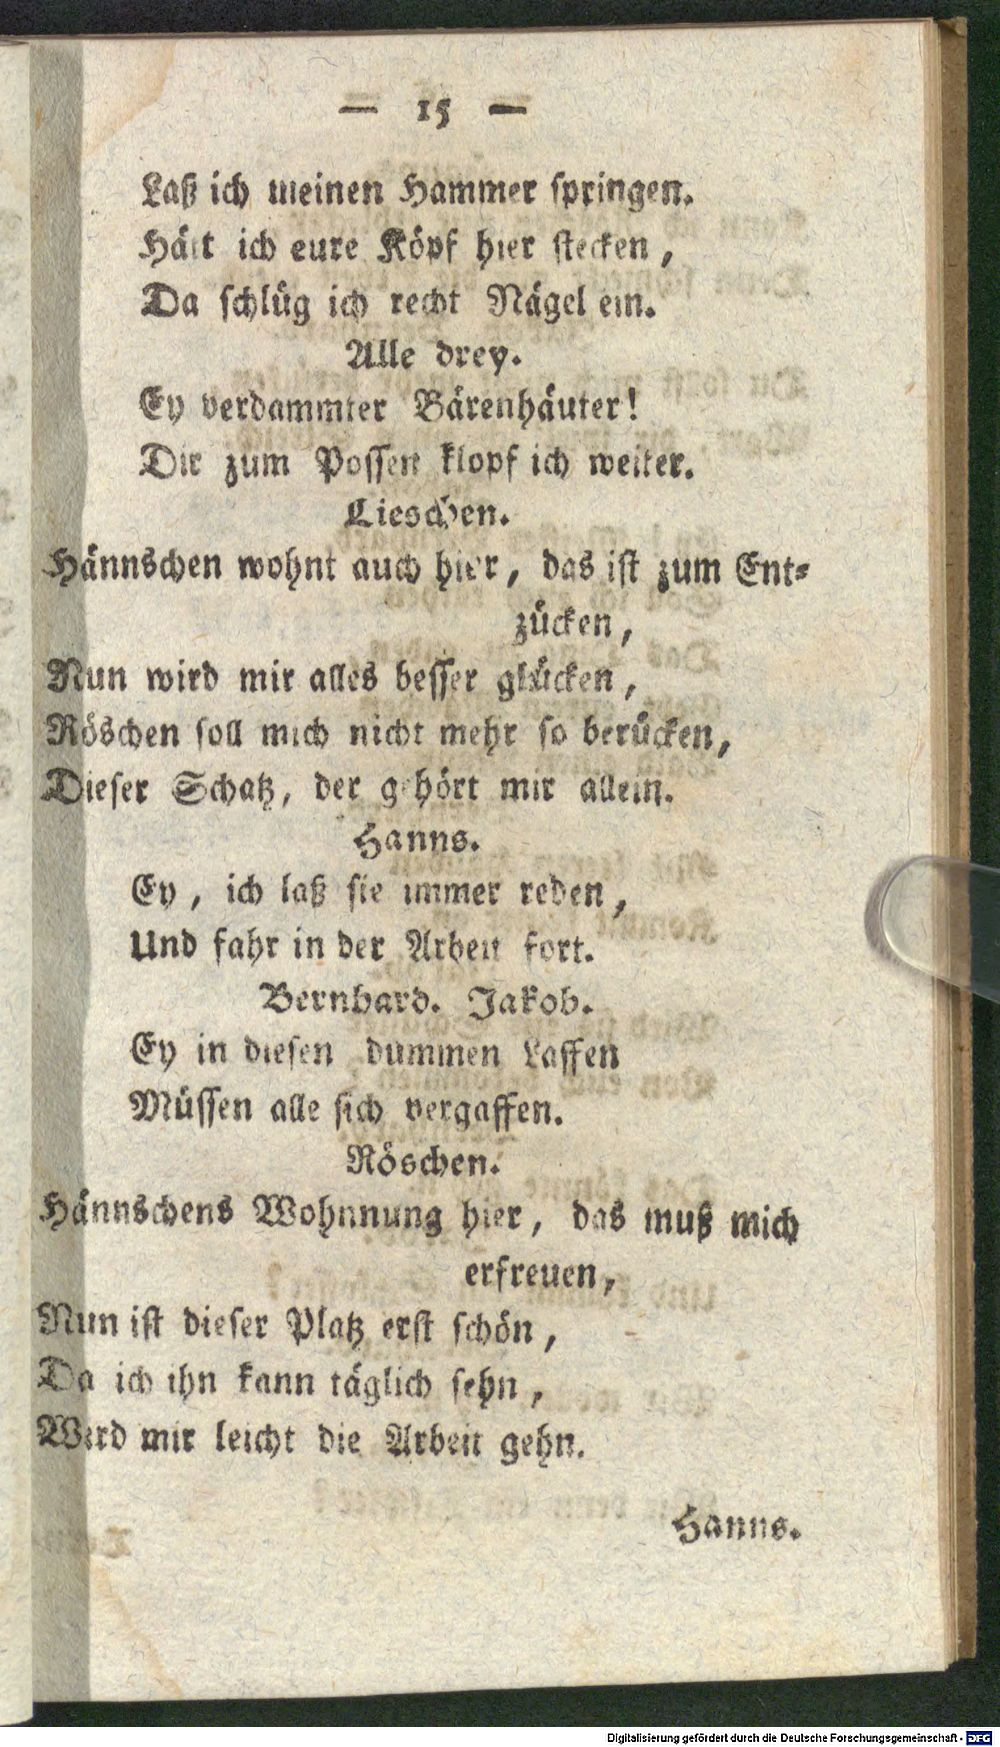 — 15 —
Laß ich meinen Hammer springen.
Hätt ich eure Köpf hier stecken,
Da schlüg ich recht Nägel ein.
Alle drey.
Ey verdammter Bärenhäuter!
Dir zum Possen klopf ich weiter.
Lieschen.
Hännschen wohnt auch hier, das ist zum Ent-
zücken,
Nun wird mir alles besser glücken,
Röschen soll mich nicht mehr so berücken,
Dieser Schatz, der gehört mir allein.
Hanns.
Ey, ich laß sie immer reden,
Und fahr in der Arbeit fort.
Bernhard. Jakob.
Ey in diesen dummen Laffen
Müssen alle sich vergaffen.
Röschen.
Hännschens Wohnnung hier, das muß mich
erfreuen,
Nun ist dieser Platz erst schön,
Da ich ihn kann täglich sehn,
Werd mir leicht die Arbeit gehn.
Hanns.
Digitalisierung gefördert durch die Deutsche Forschungsgemeinschaft - DFG